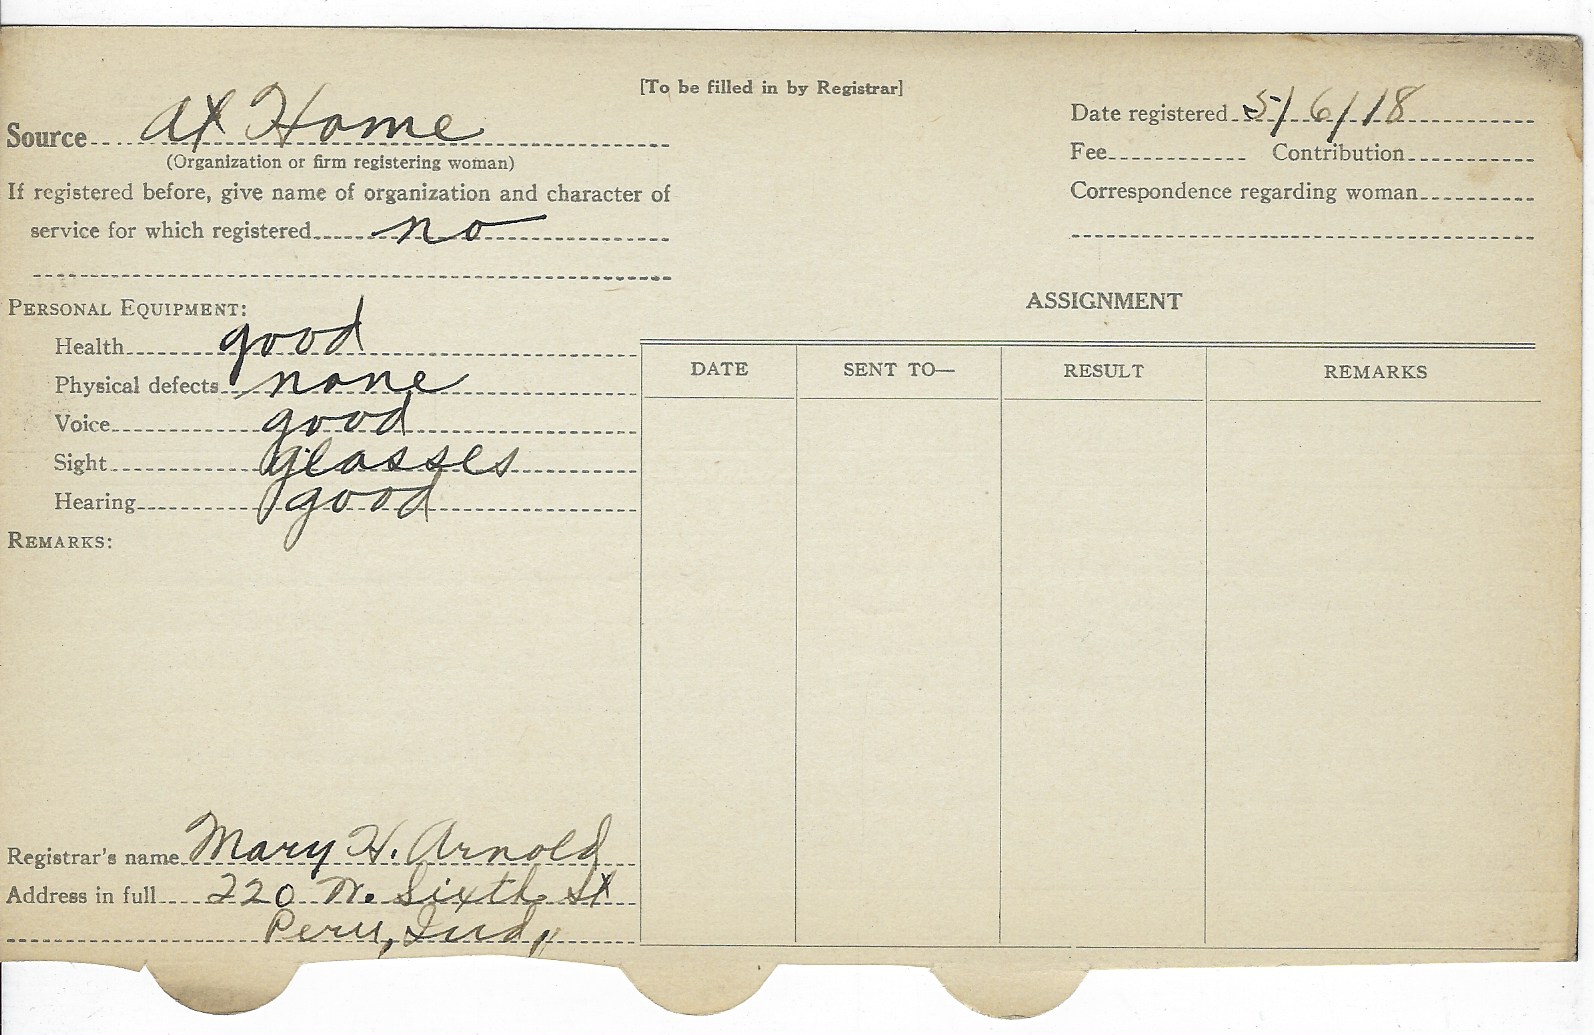 [To be filled in by Registrar]
Source At Home
(Organization or firm registering woman)
If registered before, give name of organization and character of
service for which registered no
Date registered 5/6/18
Fee Contribution
Correspondence regarding woman
PERSONAL EQUIPMENT:
Health good
Physical defects none
Voice good
Sight glasses
Hearing good
REMARKS:
ASSIGNMENT
DATE SENT TO— RESULT REMARKS
Registrar's name Mary H. Arnold
Address in full 220 W. Sixth St
Peru, Ind,